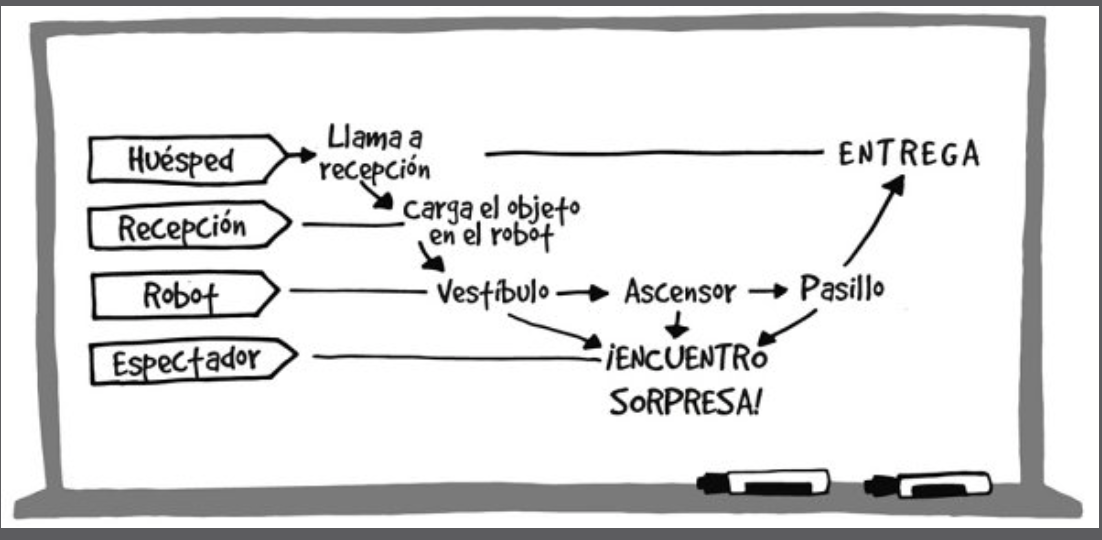 Huésped
Llama a
recepción
ENTREGA
Recepción
Carga el objeto
en el robot
Robot
Vestíbulo
Ascensor
Pasillo
Espectador
¡ENCUENTRO
SORPRESA!